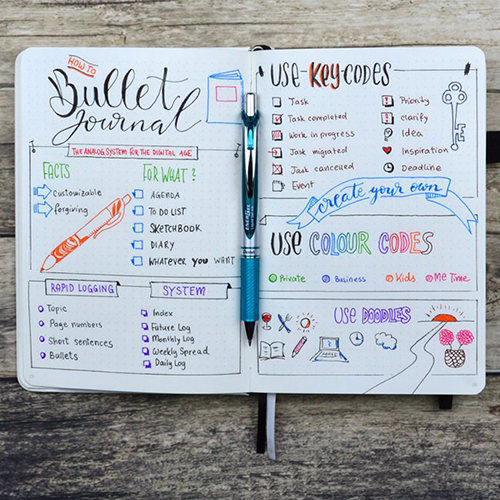 HOW TO
Bullet
Journal
THE ANALOG SYSTEM FOR THE DIGITAL AGE
FACTS
Customizable
forgiving
FOR WHAT?
AGENDA
TO DO LIST
SKETCHBOOK
DIARY
WHATEVER YOU WANT
RAPID LOGGING
Topic
Page numbers
Short sentences
Bullets
SYSTEM
Index
Future Log
Monthly Log
Weekly Spread
Daily Log
USE-KEY-CODES
Task
Task completed
Work in progress
Task migrated
Task cancelled
Event
Priority
clarify
Idea
Inspiration
Deadline
create your own
USE COLOUR CODES
Private
Business
Kids
Me Time
USE DOODLES